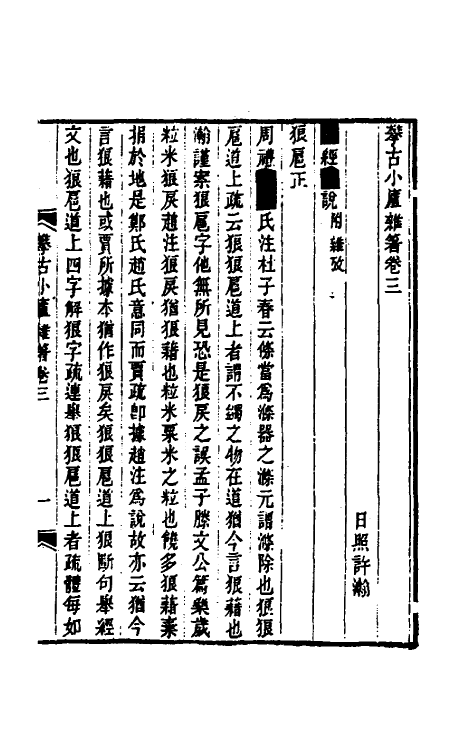 攀古小廬雜著卷三
日照許瀚
經說 附雜攷
狼扈正
周禮氏注杜子春云條當為滌器之滌元謂滌除也狼狼
扈道上疏云狼狼扈道上者謂不蠲之物在道猶今言狼藉也
瀚謹案狼扈字他無所見恐是狼戾之誤孟子滕文公篇樂歲
粒米狼戾趙注狼戾猶狼藉也粒米粟米之粒也饒多狼藉棄
捐於地是鄭氏趙氏意同而賈疏卽據趙注為說故亦云猶今
言狼藉也或賈所據本猶作狼戾矣狼狼扈道上狼斷句舉經
文也狼扈道上四字解狼字疏連舉狼狼扈道上者疏體每如
攀古小廬雜著卷三 一